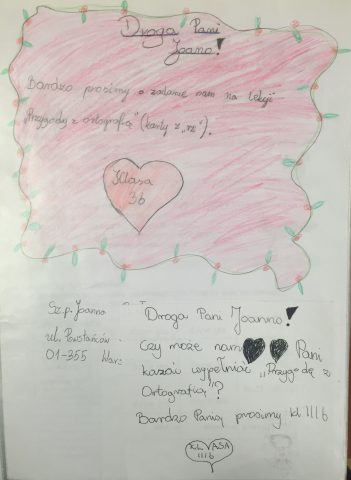 Droga Pani
Joanno!
Bardzo prosimy o zadanie nam na lekcji
"Przygody z ortografią" (karty z "rz").
Klasa
3b
Sz.p. Joanna
ul. Powstańców
01-355 War
Droga Pani Joanno!
Czy może nam Pani
kazać wypełniać "Przygodę z
Ortografią"?
Bardzo Panią prosimy kl. III b
KLASA
III b